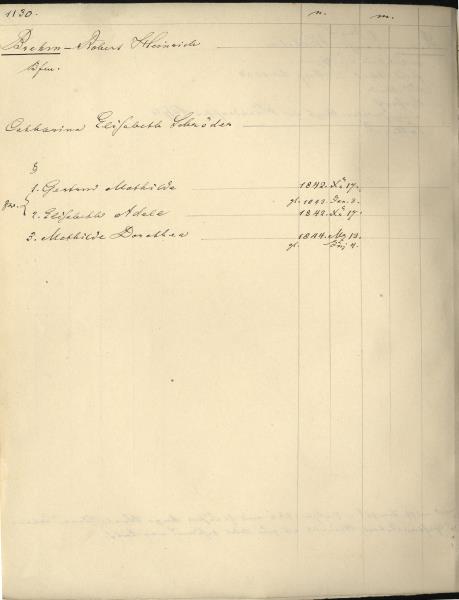 1130.
n.
m.
Brehm – Robert Heinrich
Catharina Elisabeth Schröder
§
1. Gertrud Mathilde 1842. 17.
gl. 1843. Jan. 3.
2. Elisabeth Adele 1842. 17.
3. Mathilde Dorothea 1844. Mz 13.
gl. 4.